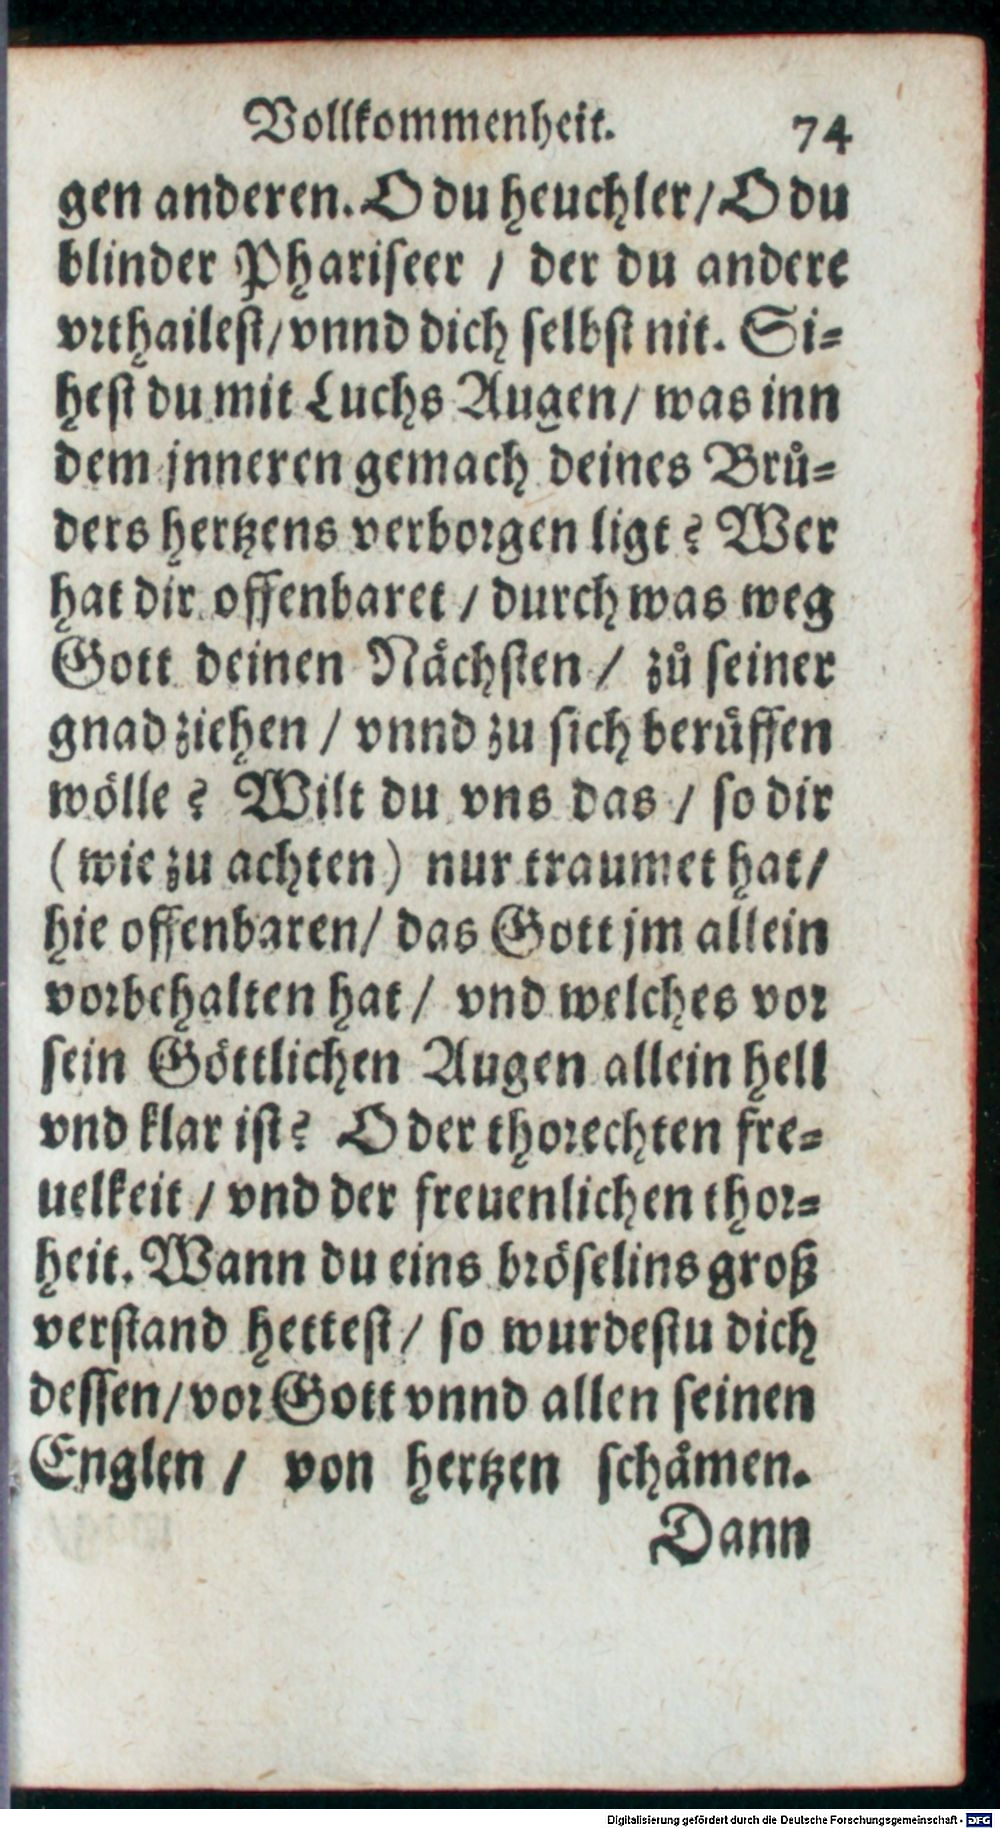 Vollkommenheit. 74
gen anderen. O du heuchler/ O du
blinder Phariseer / der du andere
vrthailest/ vnnd dich selbst nit. Si-
hest du mit Luchs Augen/ was inn
dem jnneren gemach deines Brů-
ders hertzens verborgen ligt? Wer
hat dir offenbaret / durch was weg
Gott deinen Nächsten / zů seiner
gnad ziehen / vnnd zu sich berüffen
wölle? Wilt du vns das / so dir
(wie zu achten) nur traumet hat/
hie offenbaren/ das Gott jm allein
vorbehalten hat / vnd welches vor
sein Göttlichen Augen allein hell
vnd klar ist? O der thorechten fre-
uelkeit / vnd der freuenlichen thor-
heit. Wann du eins bröselins groß
verstand hettest/ so wurdestu dich
dessen/ vor Gott vnnd allen seinen
Englen / von hertzen schämen.
Dann
Digitalisierung gefördert durch die Deutsche Forschungsgemeinschaft - DFG